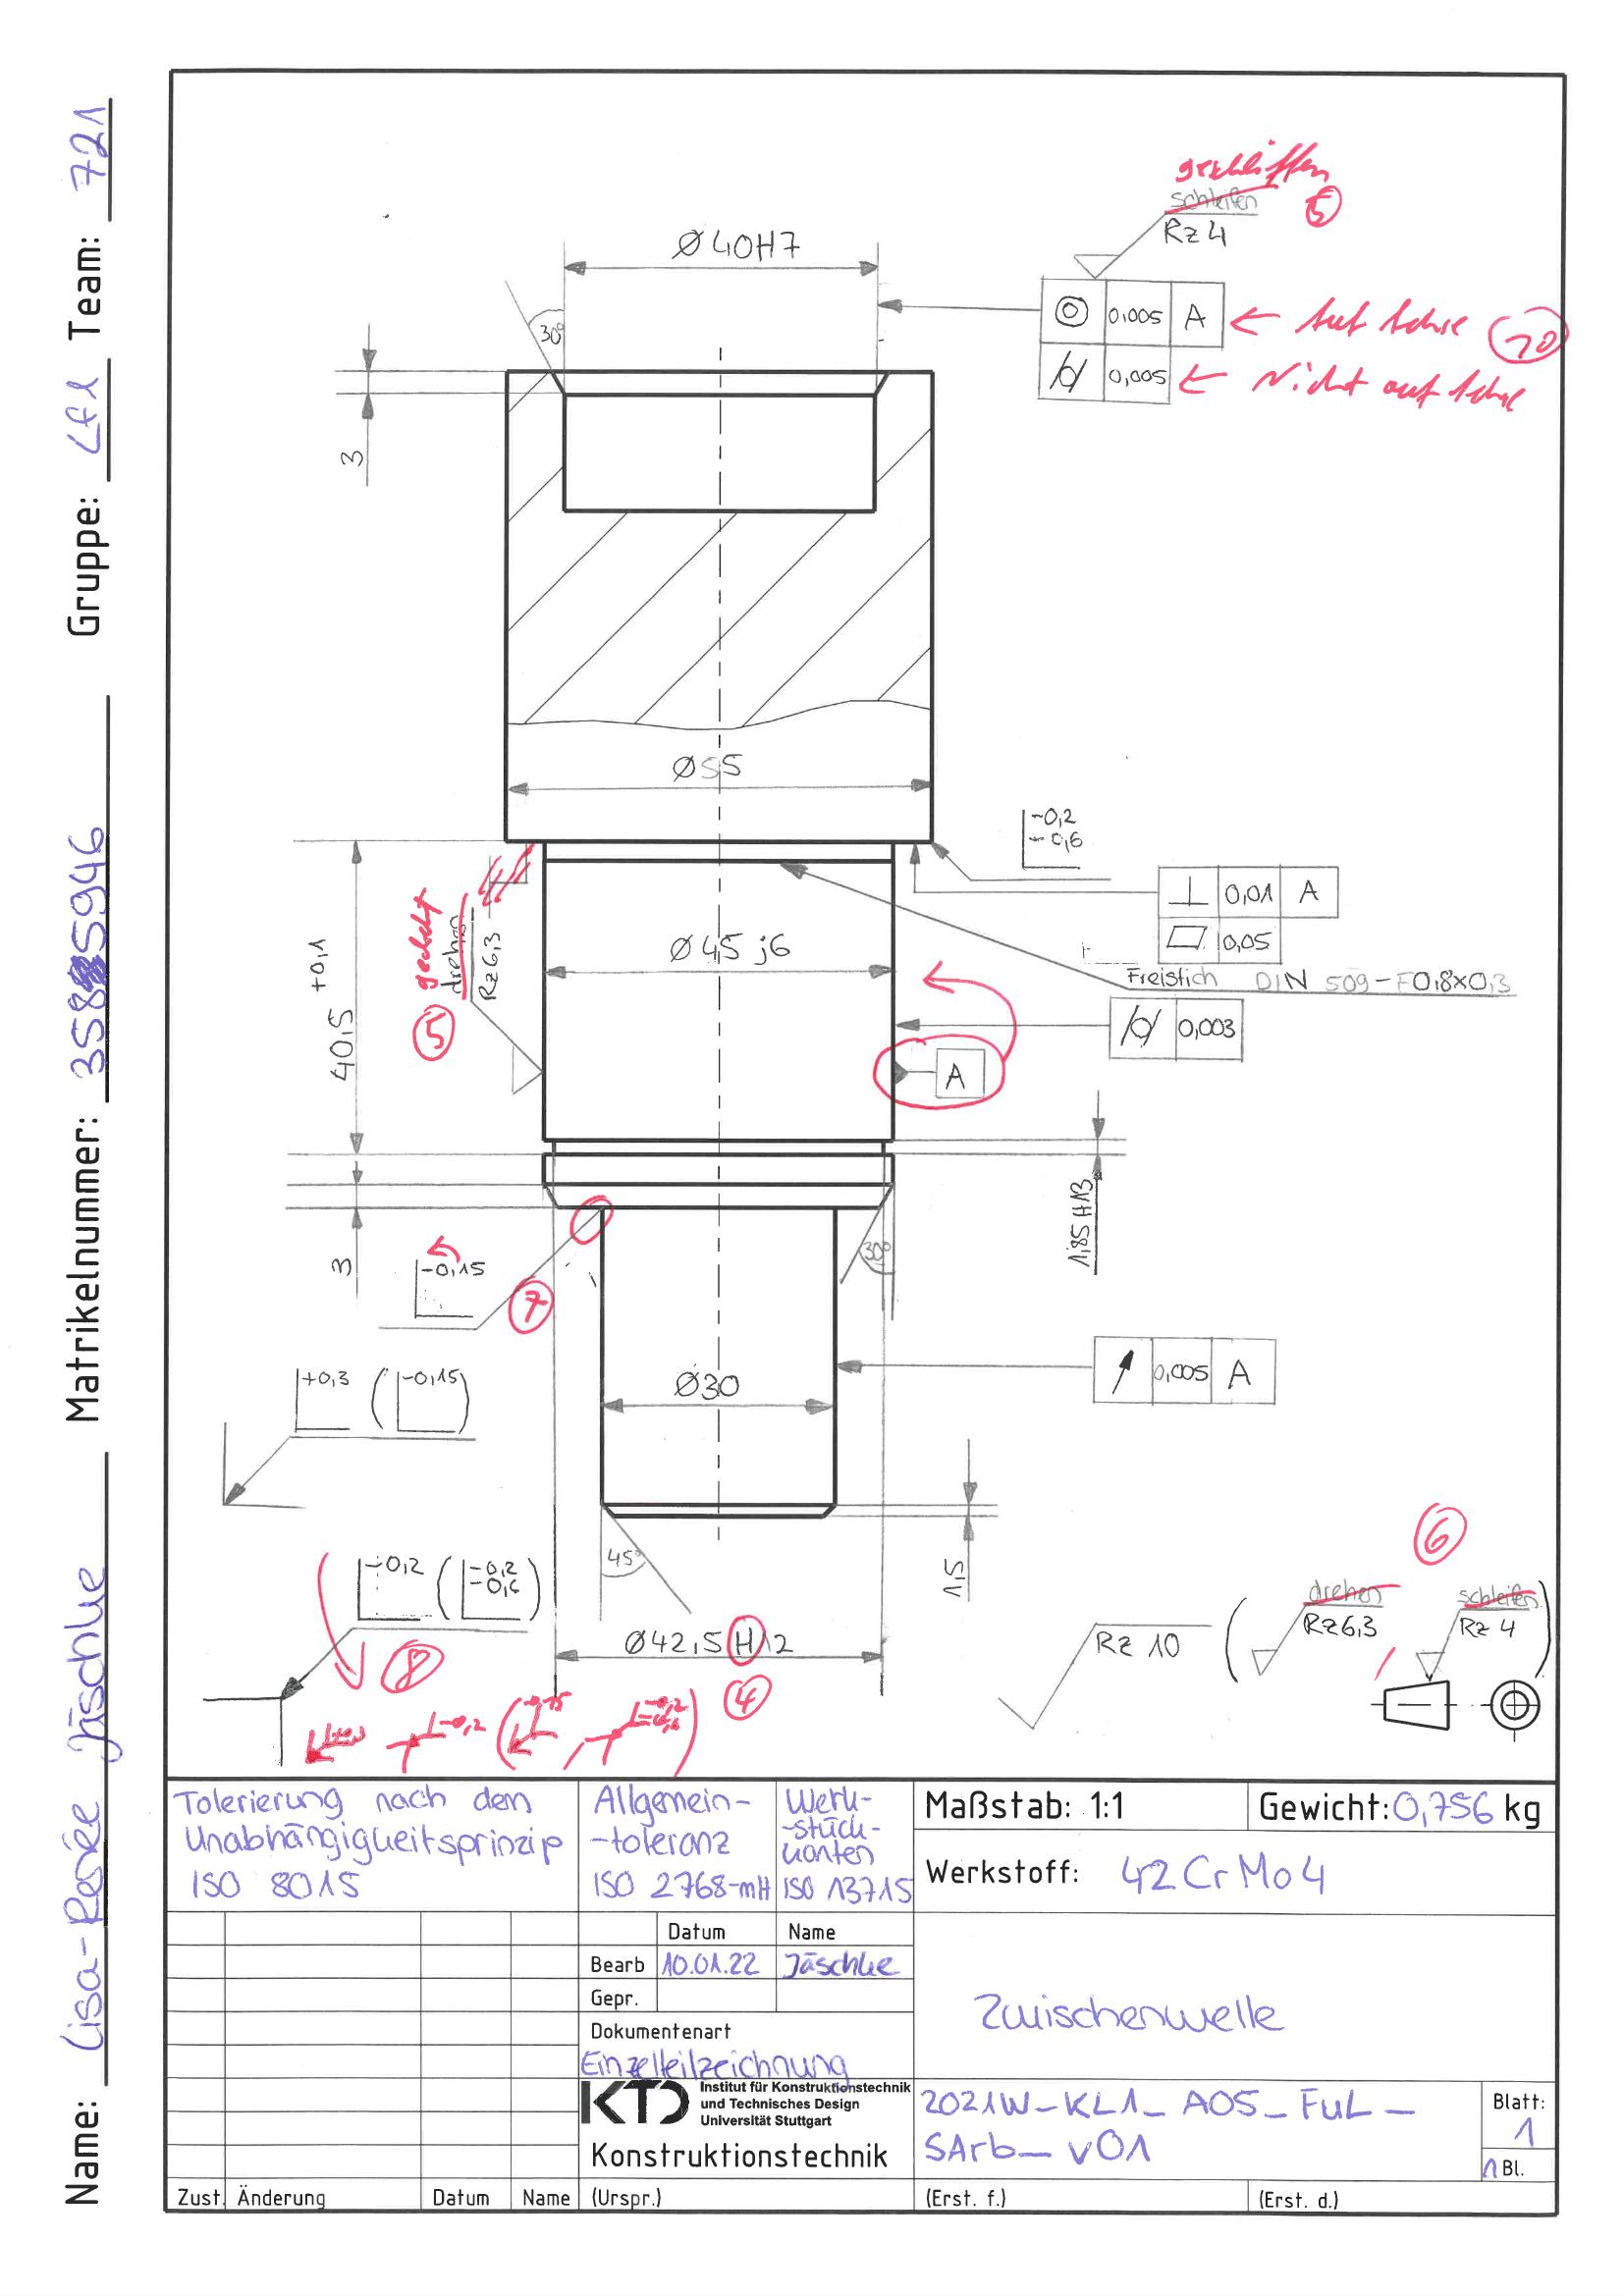 Name: Lisa-Renée Jäschke Matrikelnummer: 3585946 Gruppe: Lf1 Team: 721
geschliffen
schleifen
Rz 4
5
Ø40H7
30°
0,005 A
← Auf Achse
10
0,005
← Nicht auf Achse
3
Ø55
-0,2
-0,6
0,01 A
0,05
Freistich DIN 509-F0,8x0,3
gedreht
drehen
Rz 6,3
5
Ø45 j6
40,5 +0,1
0,003
A
1,85 H13
3
30°
-0,15
7
0,005 A
Ø30
+0,3 (-0,15)
45°
1,5
6
-0,2 (-0,2
-0,6)
8
Ø42,5 H12
4
-0,2 (-0,15
-0,2
Rz 10 (drehen
Rz 6,3
schleifen
Rz 4)
Tolerierung nach dem
Unabhängigkeitsprinzip
ISO 8015
Allgemein-
-toleranz
ISO 2768-mH
Werk-
-stück-
kanten
ISO 13715
Maßstab: 1:1
Gewicht: 0,756 kg
Werkstoff: 42CrMo4
Datum Name
Bearb 10.01.22 Jäschke
Gepr.
Dokumentenart
Einzelteilzeichnung
Zwischenwelle
KTD Institut für Konstruktionstechnik
und Technisches Design
Universität Stuttgart
Konstruktionstechnik
2021W_KL1_A05_FuL_
SArb_v01
Blatt:
1
1 Bl.
Zust. Änderung Datum Name (Urspr.) (Erst. f.) (Erst. d.)